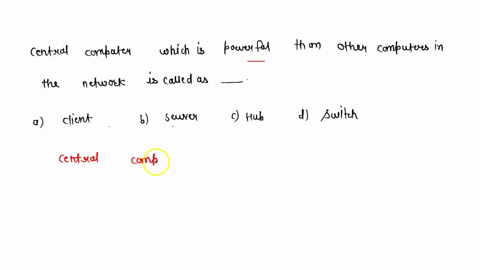 Central computer which is powerful than other computers in
the network is called as ___.
a) client b) server c) Hub d) switch
central comp